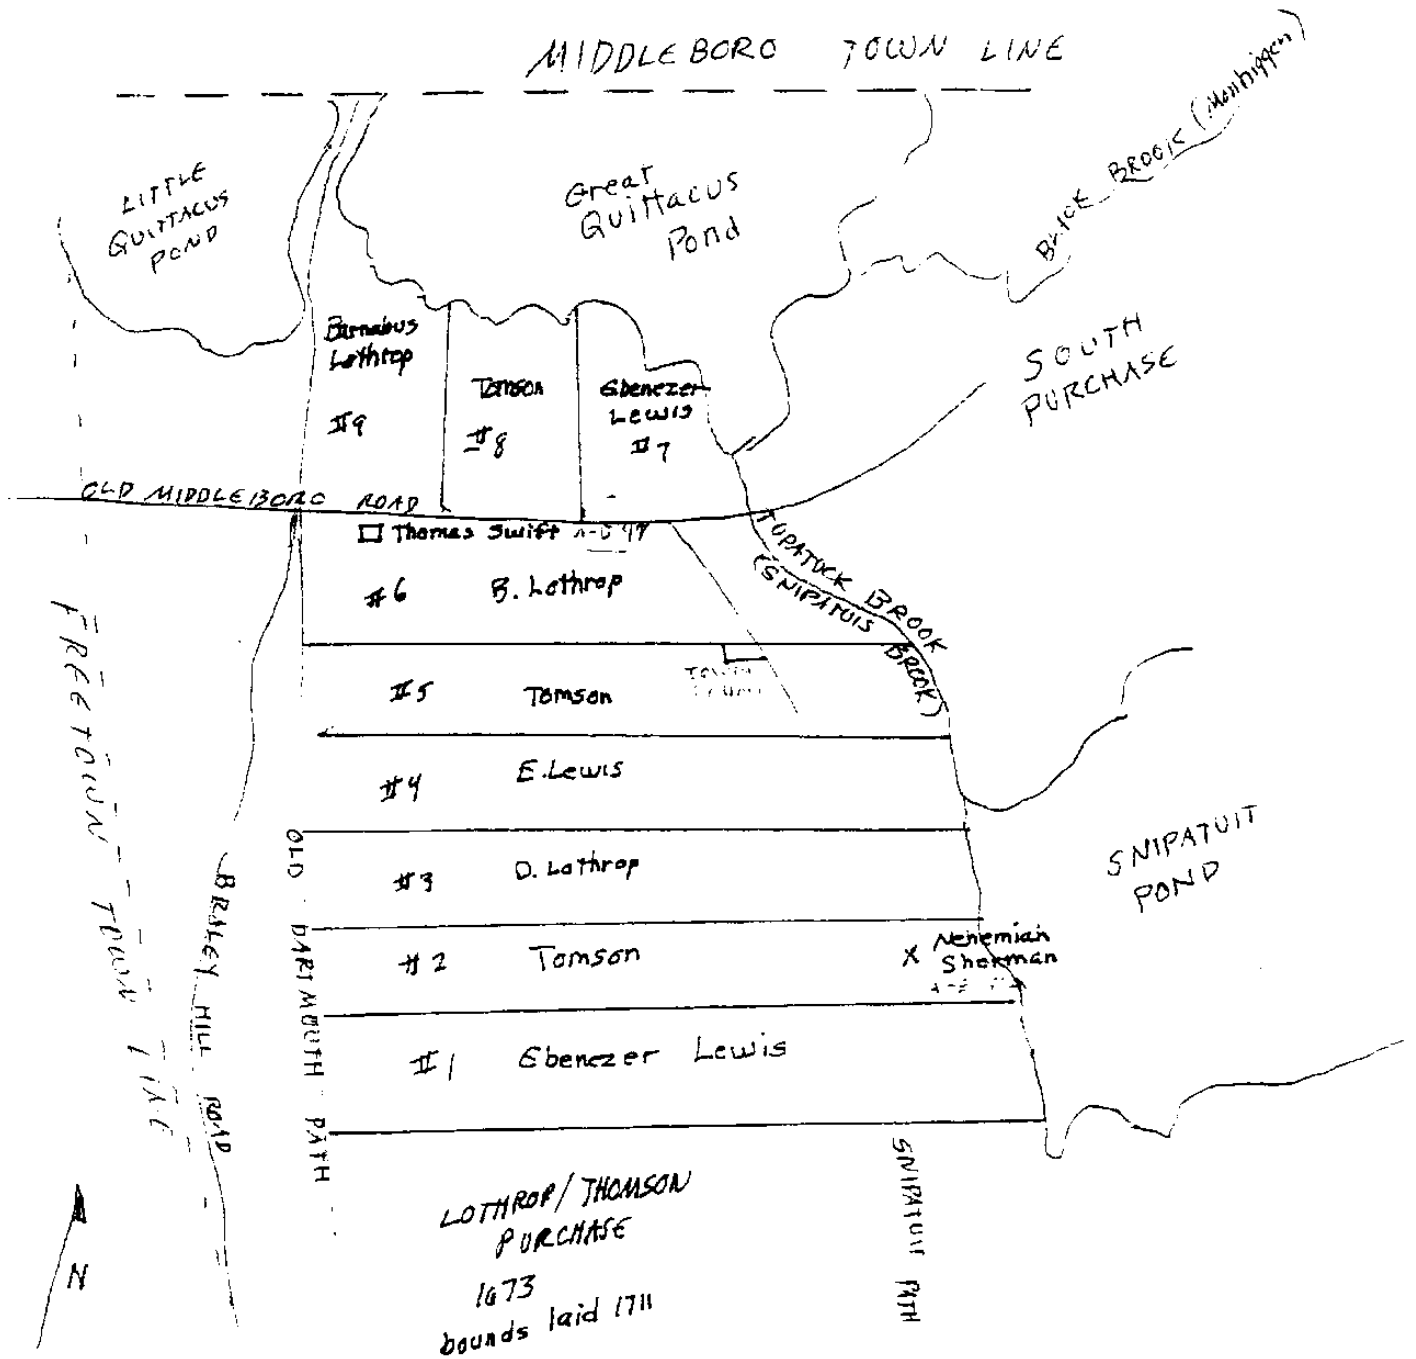 MIDDLEBORO TOWN LINE
LITTLE
QUITTACUS
POND
Great
Quittacus
Pond
BLACK BROOK (Monhiggen)
SOUTH
PURCHASE
Barnabus
Lothrop
#9
Tomson
#8
Ebenezer
Lewis
#7
OLD MIDDLEBORO ROAD
Thomas Swift
#6 B. Lothrop
TUPATUCK BROOK
(SNIPATUIS
BROOK)
#5 Tomson
TOWN
#4 E. Lewis
#3 D. Lothrop
#2 Tomson
X Nehemiah
Sherman
#1 Ebenezer Lewis
SNIPATUIT
POND
FREETOWN TOWN LINE
BRALEY HILL ROAD
OLD DARTMOUTH PATH
SNIPATUIT PATH
LOTHROP/THOMSON
PURCHASE
1673
bounds laid 1711
N